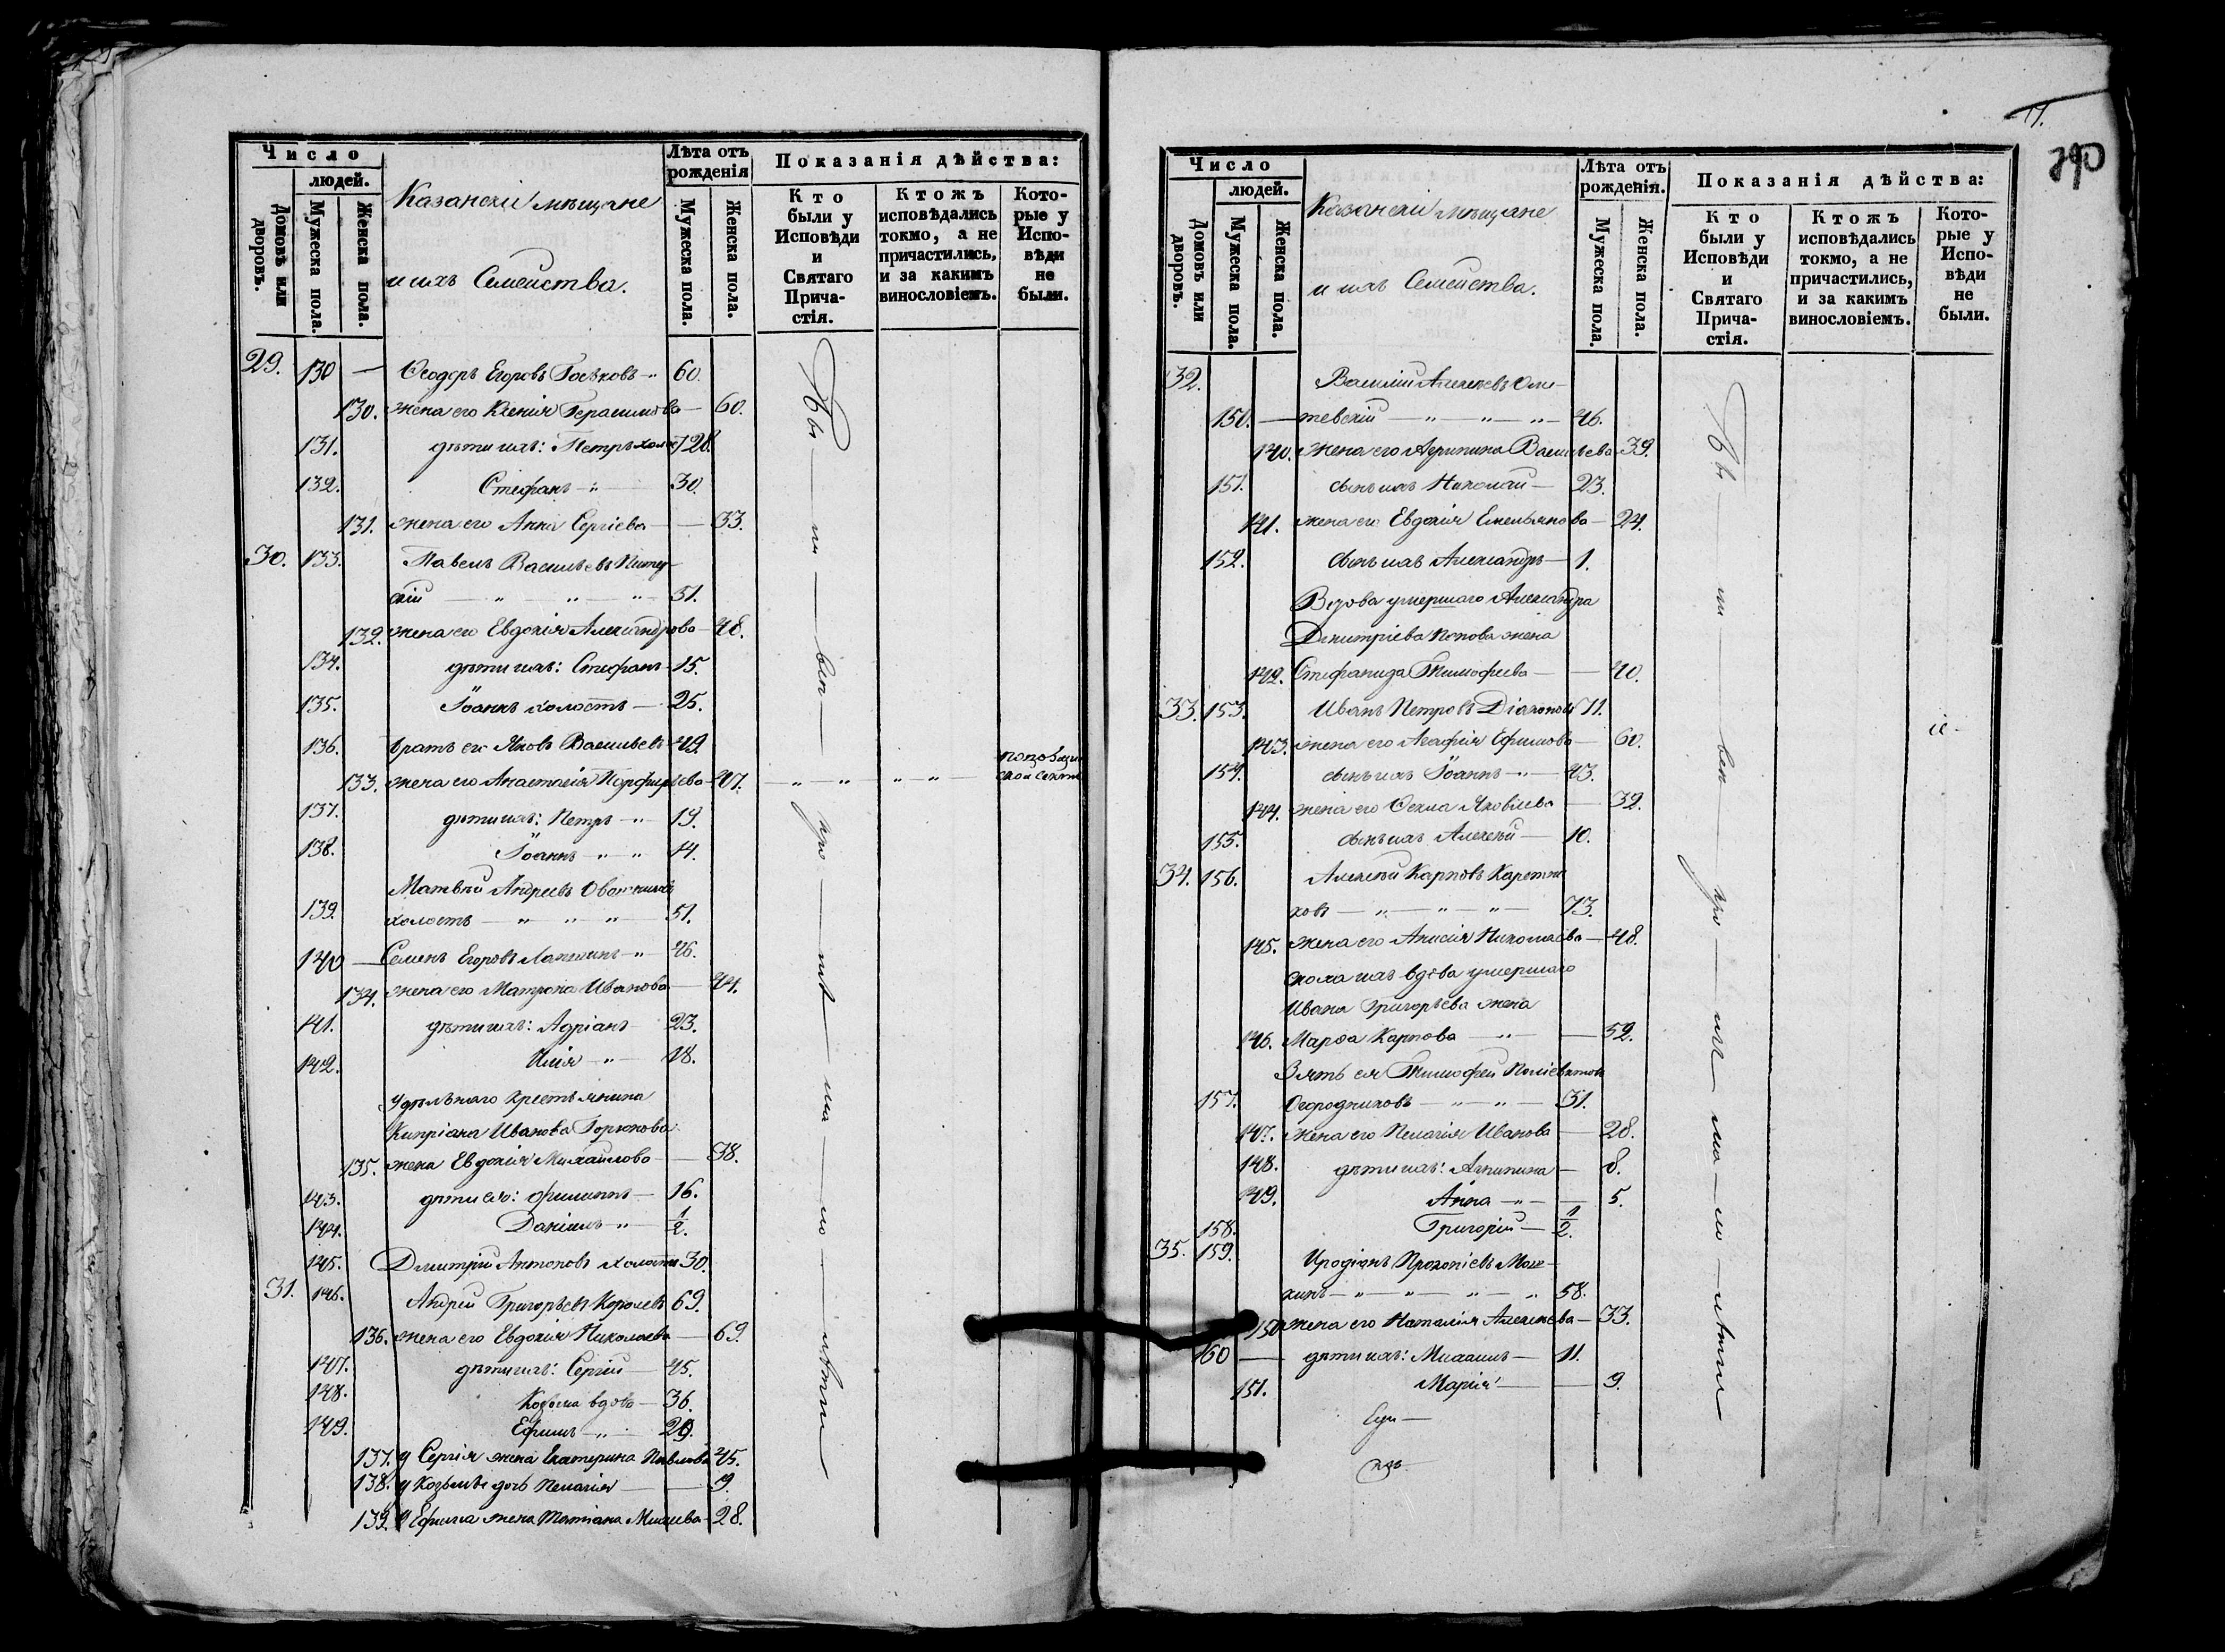 Число
людей.
Домовъ или дворовъ.
Мужеска пола.
Женска пола.
Казанскіи мѣщане
и ихъ Семейства.
Лѣта отъ рожденія
Мужеска пола.
Женска пола.
Показанія дѣйства:
Кто были у Исповѣди и Святаго Причастія.
Ктожъ исповѣдались токмо, а не причастились, и за какимъ винословіемъ.
Которые у Исповѣди не были.
29. 130 — Ѳеодоръ Егоровъ 60.
130. жена его Ксенія Герасимова — 60.
131. дѣти ихъ: Петръ холос 28.
132. Стефанъ — 30.
131. жена его Анна Сергіева — 33.
30. 133. Павелъ Васильевъ
скій — " — " — " — 51.
132. жена его Евдокія Александрова — 48.
134. дѣти ихъ: Стефанъ — 15.
135. Іоаннъ холостъ — 25.
136. братъ его Яковъ Васильевъ 49.
133. жена его Анастасія Порфирьева — 47. — " — " — " — " —
137. дѣти ихъ: Петръ — " 19.
138. Іоаннъ " — " 14.
Матвѣй Андреевъ
139. холостъ — " — " — " — 51.
140 — Семенъ Егоровъ — " 46.
134. жена его Матрона Иванова — 44.
141. дѣти ихъ: Адріанъ 23.
142. Илія — " — 18.
Удѣльнаго крестьянина
Кипріана Иванова Горюнова
135. жена Евдокія Михайлова — 38.
143. дѣти ею: Филиппъ — 16.
144. Даніилъ — " 1/2.
145. Дмитрій Антоновъ холостъ 30.
31. 146. Андрей Григорьевъ Королевъ 69.
136. жена его Евдокія Николаева — 69.
147. дѣти ихъ: Сергій — 45.
148. Козьма вдовъ — 36.
149. Ефимъ — " — 29.
137. у Сергія жена Екатерина Павлова 45.
138. у Козьмы дочь Пелагія — 9.
139. у Ефима жена Татіана — 28.
11.
290
Число
людей.
Домовъ или дворовъ.
Мужеска пола.
Женска пола.
Казанскіи мѣщане
и ихъ Семейства.
Лѣта отъ рожденія.
Мужеска пола.
Женска пола.
Показанія дѣйства:
Кто были у Исповѣди и Святаго Причастія.
Ктожъ исповѣдались токмо, а не причастились, и за какимъ винословіемъ.
Которые у Исповѣди не были.
32. Василій Алексѣевъ
150. — тевскій — " — " — " — 46.
140. жена его Агрипина Васильева 39.
151. сынъ ихъ Николай — 23.
141. жена его Евдокія Емельянова — 24.
152. сынъ ихъ Александръ — 1.
Вдова умершаго Александра
Дмитріева Попова жена
142. Стефанида Тимофеева — 40.
33. 153. Иванъ Петровъ Діаконовъ 71.
143. жена его Агафія Ефимова — 60.
154. сынъ ихъ Іоаннъ — " — 43.
144. жена его Ѳекла Яковлева — 32.
155. сынъ ихъ Алексѣй — 10.
34. 156. Алексѣй Карповъ Каретни
ковъ — " — " — " — 73.
145. жена его Анисія Николаева — 48.
сноха ихъ вдова умершаго
Ивана Григорьева жена
146. Марѳа Карпова — " — 52.
Зять ея Тимофей
157. Огородниковъ — " — " — 31.
147. жена его Пелагія Иванова — 28.
148. дѣти ихъ: Агрипина — 8.
149. Анна — " — 5.
158. Григорій — 1/2.
35. 159. Иродіонъ Прокопіевъ
хинъ — " — " — " — " 58.
150 жена его Наталія Алексѣева — 33.
160 — дѣти ихъ: Михаилъ — 11.
151. Марія — 9.